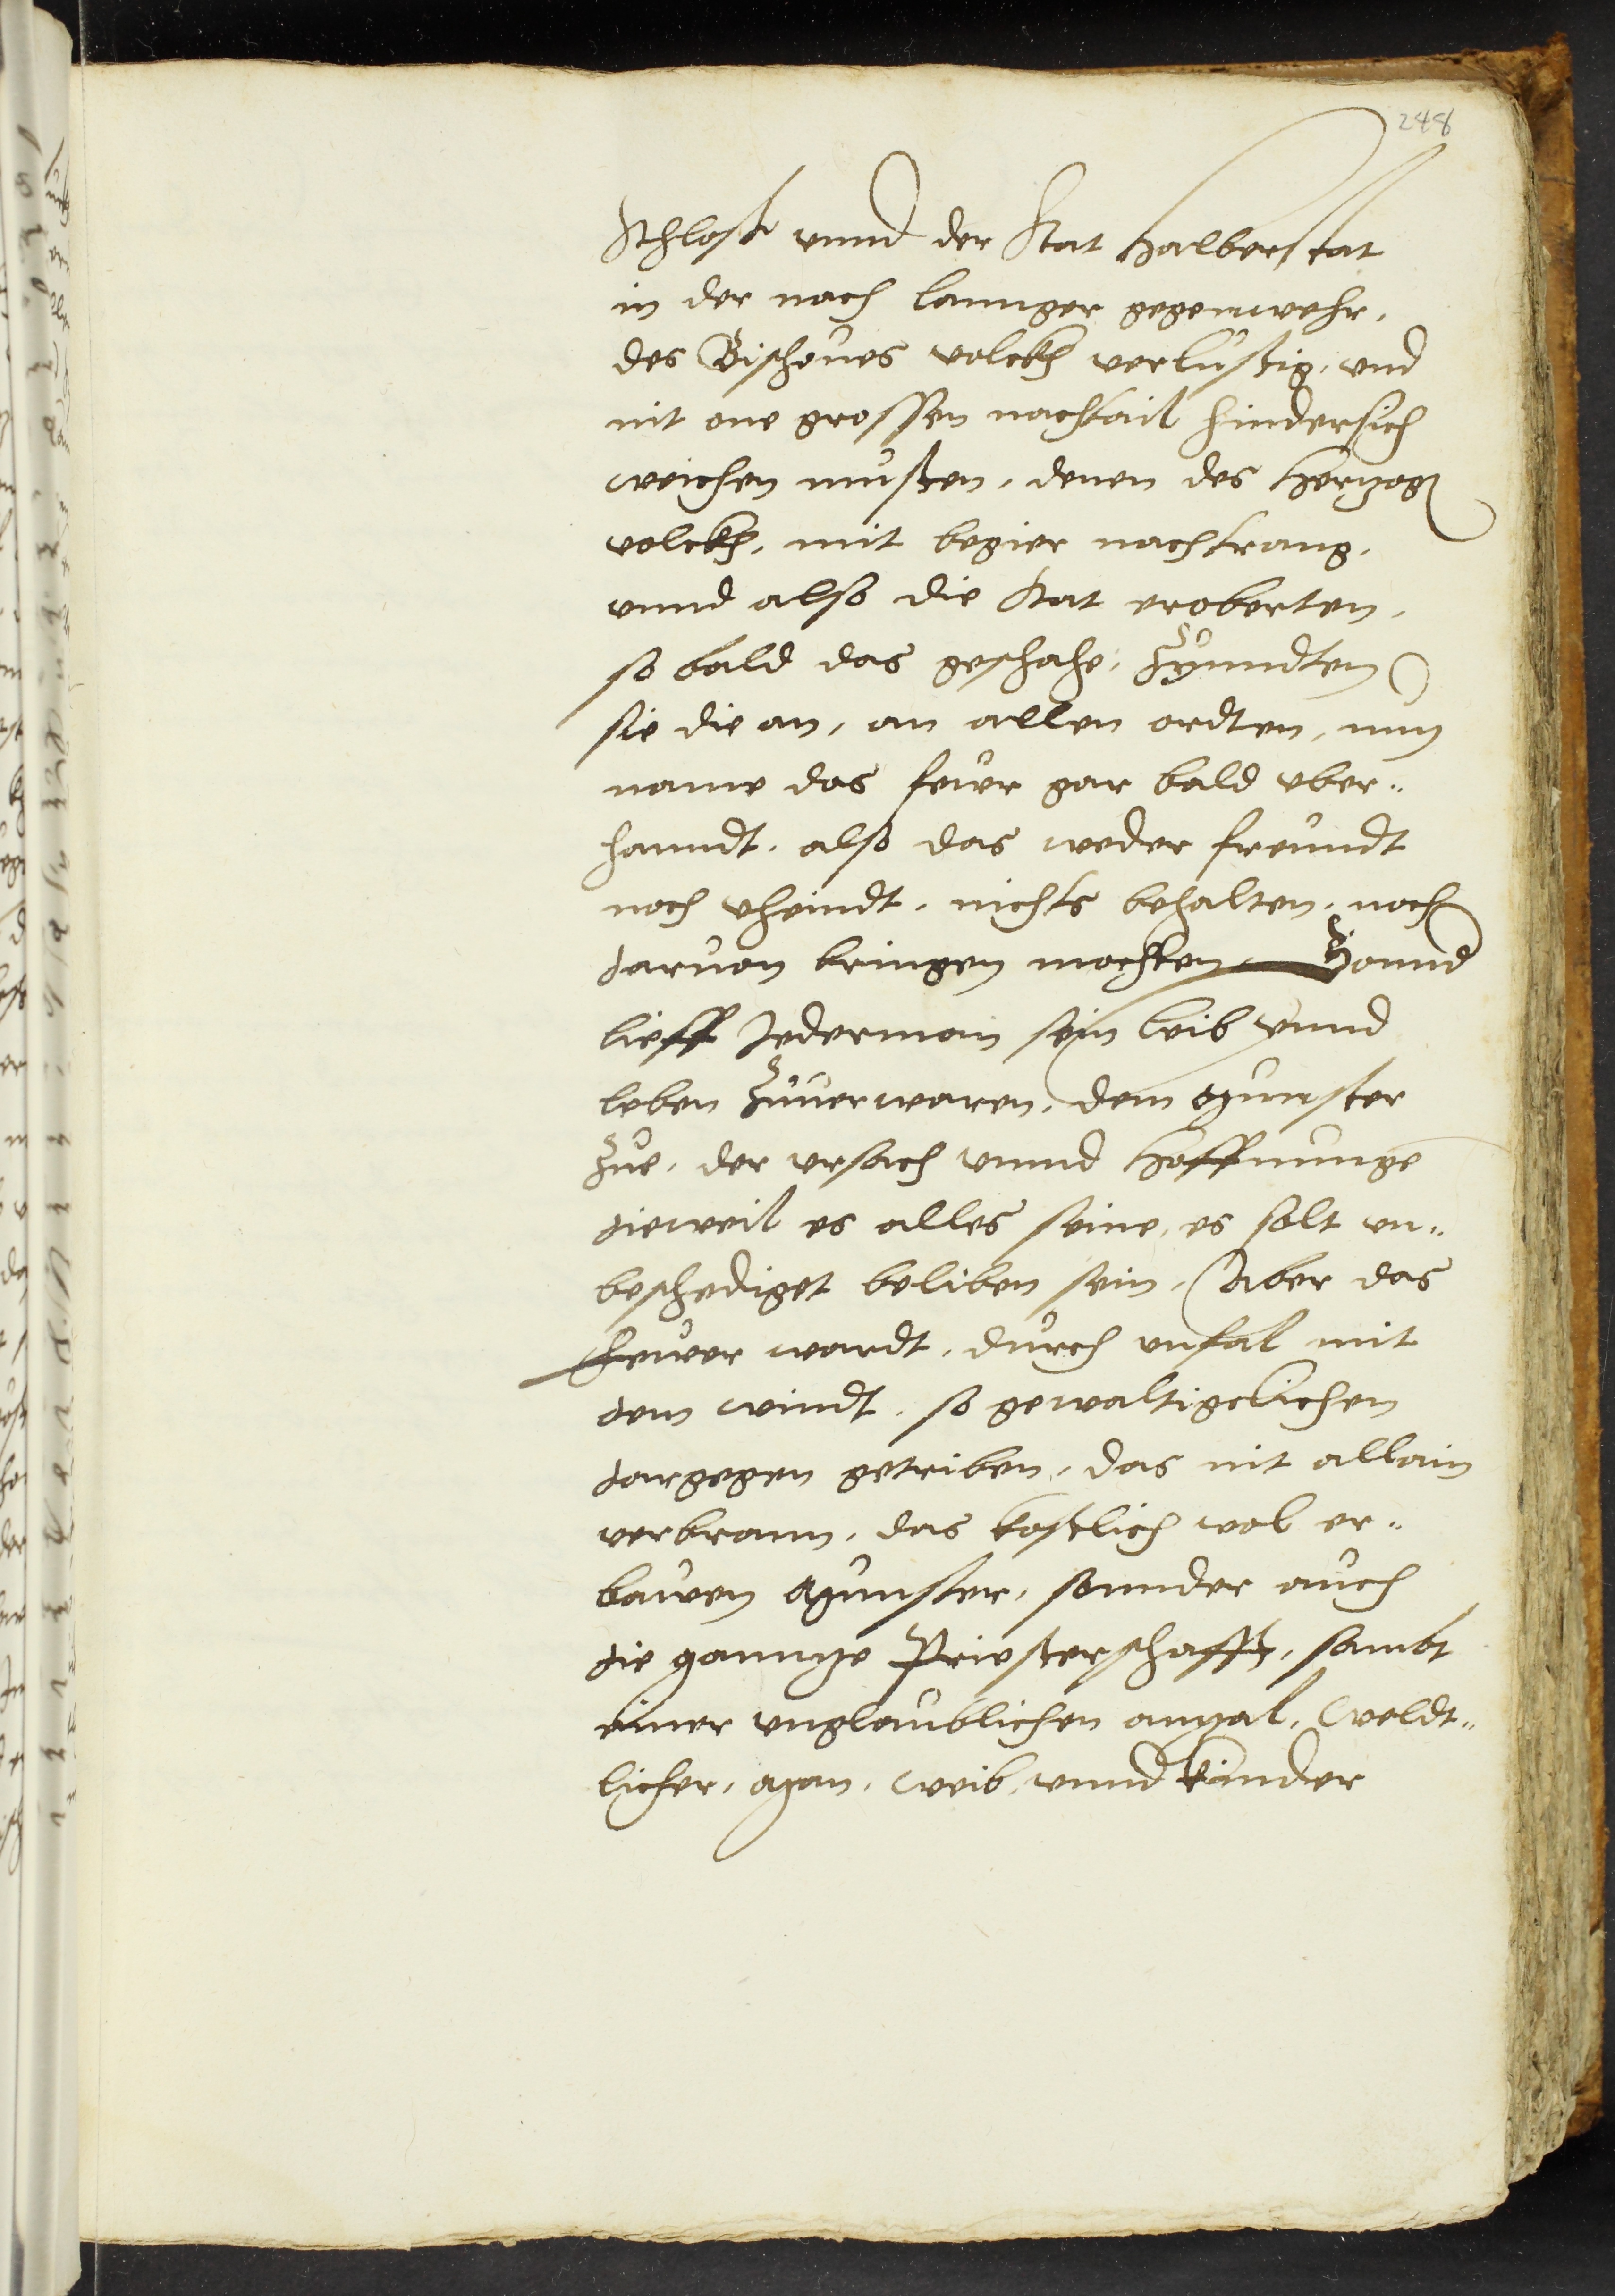 248
Schloss vnnd der Stat Halberstat
in der nach lannger gegenwehr,
des Bischoues volckh verlustig, vnd
nit one grossen nachtail hindersich
weichen musten, denen des Hertzogs
volckh, mit begier nachtrang,
vnnd also die Stat eroberten,
so bald das geschahe, Zynndten
sie die an, an allen ordten, nun
name das feuer gar bald vber-
hanndt, also das weder freundt
noch vheindt, nichts behalten, noch
daruon bringen mochten, Vnnd
lieff Jederman sein leib vnnd
leben Zuuerwaren, dem Munster
Zue, der vrsach vnnd Hoffnunge
dieweil es alles seine, es solt vn-
beschediget beliben sein, Aber das
feuer wardt, durch vnfal mit
dem windt, so gewaltigclichen
dargegen getriben, das nit allain
verbrann, das kostlich wol er-
bauen Munster, sonnder auch
die ganntze Priesterschafft, sambt
einer vnglaublichen anzal, Weldt-
licher, Man, Weib, vnnd kinder